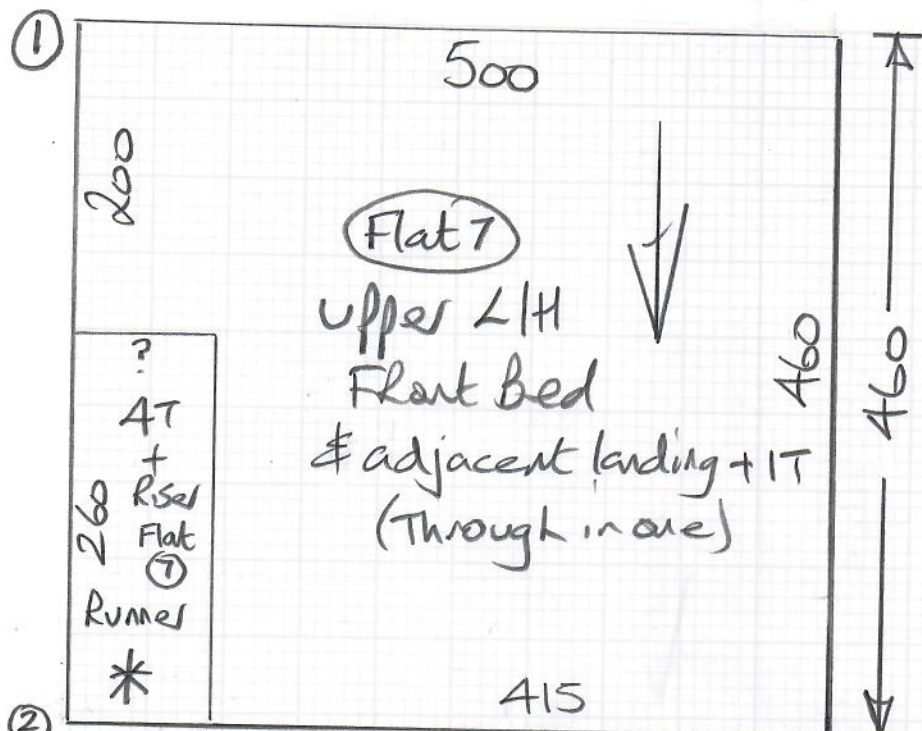 ①
500
200
Flat 7
upper L/H
Front Bed
& adjacent landing + 1T
(Through in one)
460
460
?
4T
+
Riser
Flat
⑦
260
Runner
*
415
②